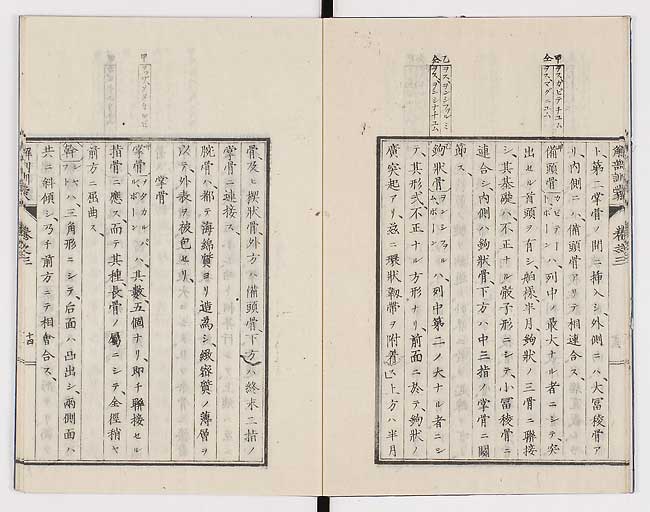 甲 ヲス、カピテチュム
仝 ヲス、マグニュム
乙 ヲス、ヲンシフヲルミ
仝 ヲス、ヲンシナチュム
ト第二掌骨ノ間ニ挿入シ外側ニハ大冨稜骨ア
リ内側ニハ備頭骨アリテ相連合ス、
備頭骨ハ列中ノ最大ナル者ニシテ、突
出セル首頭ヲ有シ舶様半月鉤狀ノ三骨ニ聯接
シ、其基礎ハ不正ナル骰子形ニシテ、小冨稜骨ニ
連合シ内側ハ鉤狀骨、下方ハ中三指ノ掌骨ニ關
節ス、
鉤狀骨ハ列中第二ノ大ナル者ニシ
テ、其形式不正ナル方形ナリ、前面ニ於テ鉤狀ノ
廣突起アリ、茲ニ環狀韌帶ヲ附着ス上方ハ半月
解剖訓蒙 卷之三
骨及ヒ楔狀骨外方ハ備頭骨下方ハ終末二指ノ
掌骨ニ連接ス、
腕骨ハ都テ海綿質ヨリ造爲シ、緻密質ノ薄層ヲ
以テ外表ヲ被包セリ、
掌骨
掌骨ハ、其數五個ナリ、即チ聯接セル
指骨ニ應ス而テ其種長骨ノ屬ニシテ、全徑稍ヤ
前方ニ屈曲ス、
幹ハ三角形ニシテ、后面ハ凸出シ、兩側面ハ
共ニ斜傾シ乃チ前方ニテ相會合ス、
解剖訓蒙 卷之三 十四